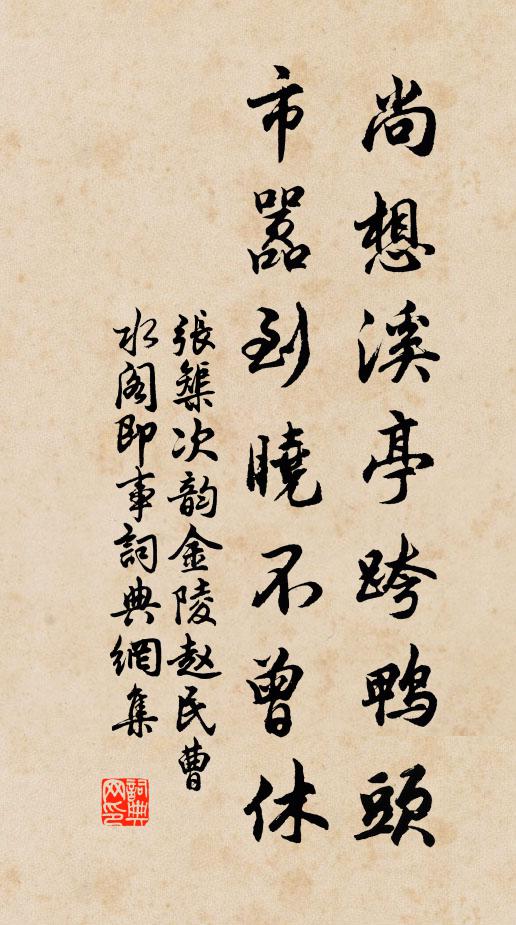 尚想溪亭跨鸭頭
市嚣到曉不曾休
張榘次韵金陵赵民曹
水阁即事詞典網集
詞典网印